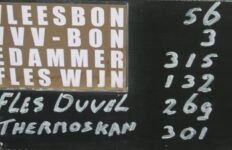 VLEESBON 56
VVV-BON 3
EDAMMER 315
FLES WIJN 132
FLES DUVEL 269
THERMOSKAN 301